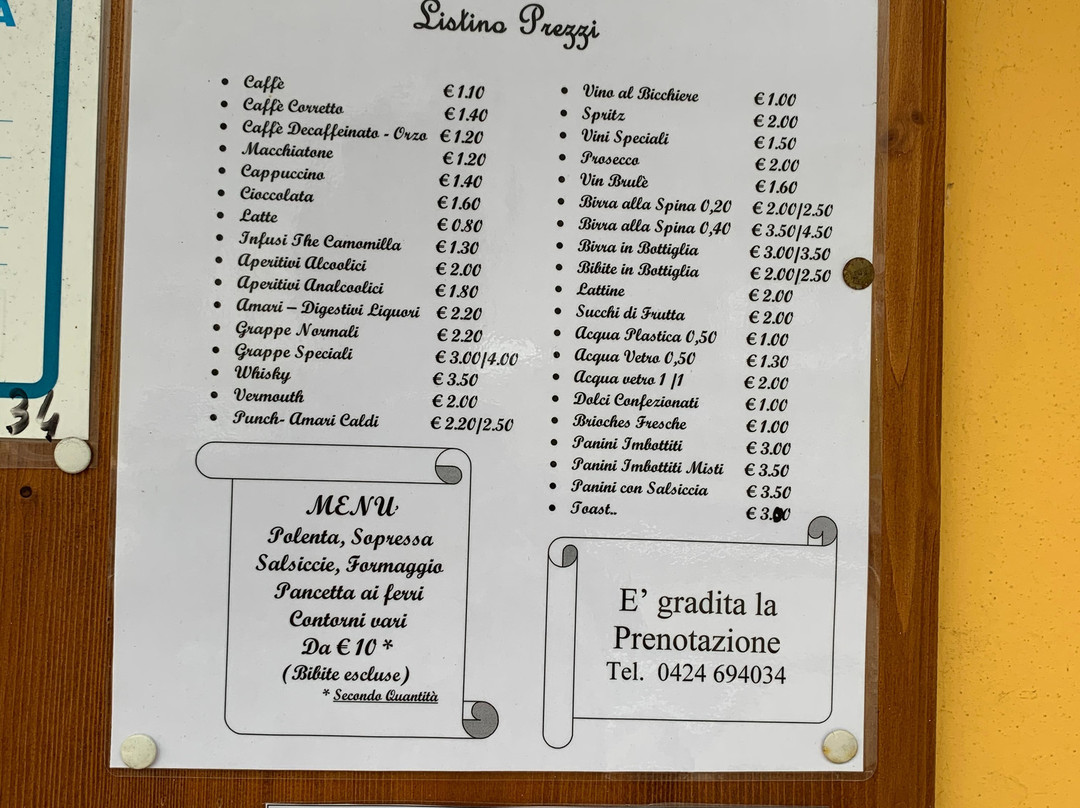 A
34
Listino Prezzi
• Caffè € 1.10
• Caffè Corretto € 1.40
• Caffè Decaffeinato - Orzo € 1.20
• Macchiatone € 1.20
• Cappuccino € 1.40
• Cioccolata € 1.60
• Latte € 0.80
• Infusi The Camomilla € 1.30
• Aperitivi Alcoolici € 2.00
• Aperitivi Analcoolici € 1.80
• Amari – Digestivi Liquori € 2.20
• Grappe Normali € 2.20
• Grappe Speciali € 3.00/4.00
• Whisky € 3.50
• Vermouth € 2.00
• Punch- Amari Caldi € 2.20/2.50
• Vino al Bicchiere € 1.00
• Spritz € 2.00
• Vini Speciali € 1.50
• Prosecco € 2.00
• Vin Brulè € 1.60
• Birra alla Spina 0,20 € 2.00/2.50
• Birra alla Spina 0,40 € 3.50/4.50
• Birra in Bottiglia € 3.00/3.50
• Bibite in Bottiglia € 2.00/2.50
• Lattine € 2.00
• Succhi di Frutta € 2.00
• Acqua Plastica 0,50 € 1.00
• Acqua Vetro 0,50 € 1.30
• Acqua vetro 1 /1 € 2.00
• Dolci Confezionati € 1.00
• Brioches Fresche € 1.00
• Panini Imbottiti € 3.00
• Panini Imbottiti Misti € 3.50
• Panini con Salsiccia € 3.50
• Toast.. € 3.00
MENU'
Polenta, Sopressa
Salsiccie, Formaggio
Pancetta ai ferri
Contorni vari
Da € 10 *
(Bibite escluse)
* Secondo Quantità
E' gradita la
Prenotazione
Tel. 0424 694034